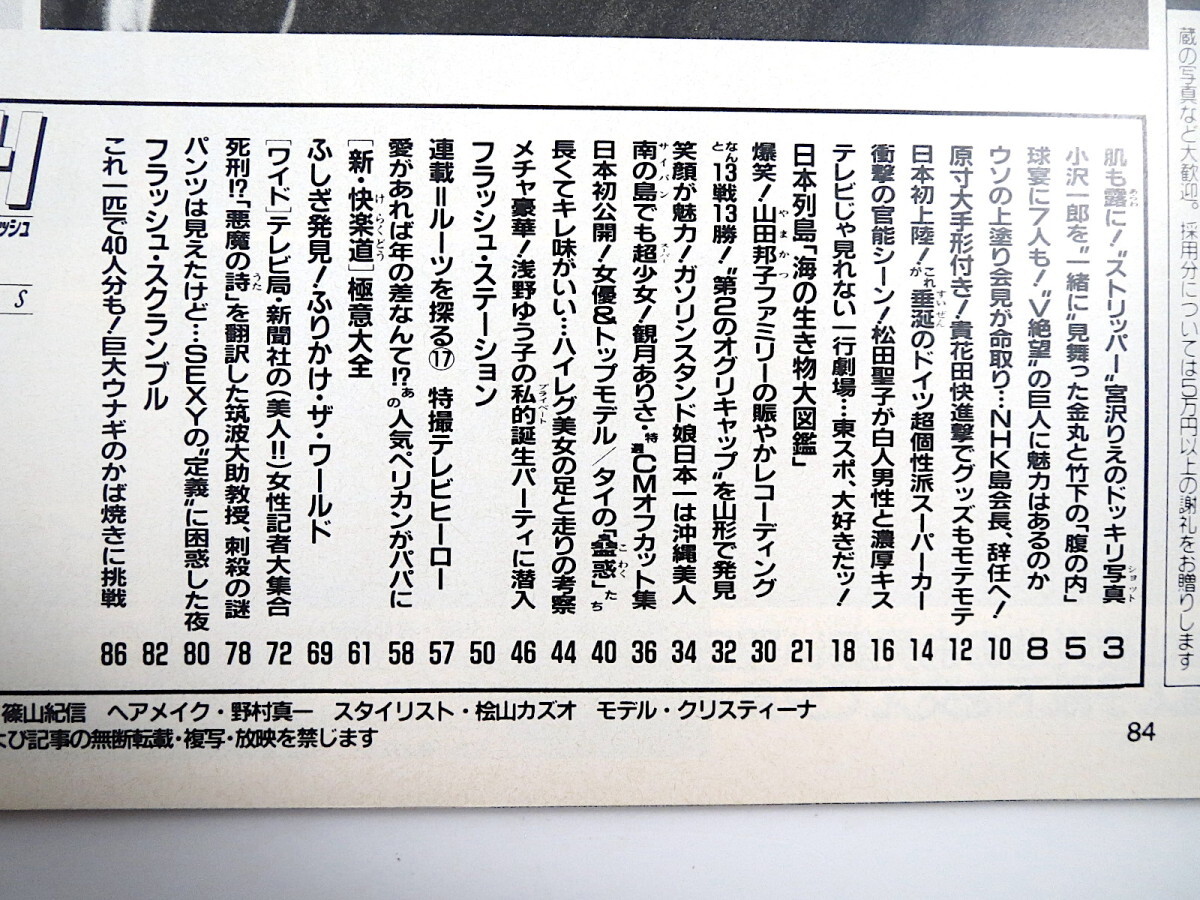 蔵の写真など大歓迎。採用分については5万円以上の謝礼をお贈りします
肌も露に!“ストリッパー”宮沢りえのドッキリ写真 3
小沢一郎を“一緒に”見舞った金丸と竹下の「腹の内」 5
球宴に7人も!“V絶望”の巨人に魅力はあるのか 8
ウソの上塗り会見が命取り…NHK島会長、辞任へ! 10
原寸大手形付き!貴花田快進撃でグッズもモテモテ 12
日本初上陸!これが垂涎のドイツ超個性派スーパーカー 14
衝撃の官能シーン!松田聖子が白人男性と濃厚キス 16
テレビじゃ見れない一行劇場…東スポ、大好きだッ! 18
日本列島「海の生き物大図鑑」 21
爆笑!山田邦子ファミリーの賑やかレコーディング 30
なんと13戦13勝!“第2のオグリキャップ”を山形で発見 32
笑顔が魅力!ガソリンスタンド娘日本一は沖縄美人 34
南の島でも超少女!観月ありさ・特選CMオフカット集 36
日本初公開!女優&トップモデル/タイの「蠱惑」たち 40
長くてキレ味がいい…ハイレグ美女の足と走りの考察 44
メチャ豪華!浅野ゆう子の私的誕生パーティに潜入 46
フラッシュ・ステーション 50
連載=ルーツを探る⑰ 特撮テレビヒーロー 57
愛があれば年の差なんて!?あの人気ペリカンがパパに 58
[新・快楽道]極意大全 61
ふしぎ発見!ふりかけ・ザ・ワールド 69
[ワイド]テレビ局・新聞社の(美人!!)女性記者大集合 72
死刑!?「悪魔の詩」を翻訳した筑波大助教授、刺殺の謎 78
パンツは見えたけど…SEXYの“定義”に困惑した夜 80
フラッシュ・スクランブル 82
これ一匹で40人分も!巨大ウナギのかば焼きに挑戦 86
ッシュ
S
篠山紀信 ヘアメイク・野村真一 スタイリスト・桧山カズオ モデル・クリスティーナ
よび記事の無断転載・複写・放映を禁じます
84